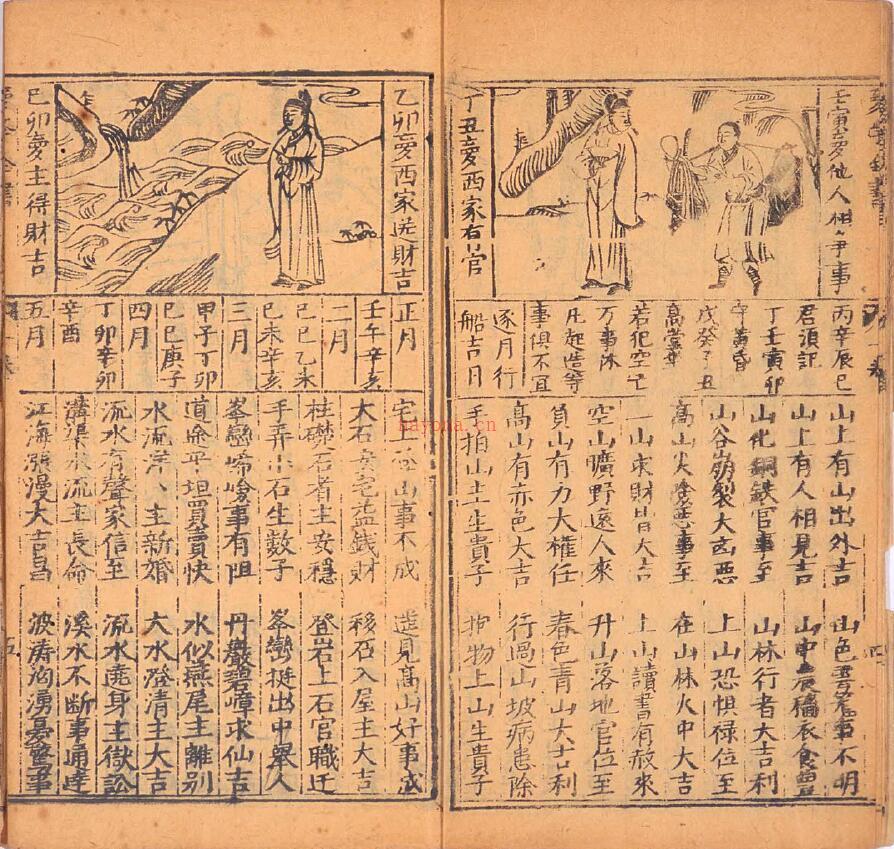 壬寅夢他人相爭事
丁丑夢西家有官
丙辛辰巳
君須記
丁壬寅卯
守黃昏
戊癸子丑
高堂坐
若犯空亡
万事休
凡起造等
事俱不宜
逐月行
船吉日
山上有山出外吉
山上有人相見吉
山化銅鉄官事至
山谷崩裂大凶悪
高山火燒悪事至
上山求財皆大吉
空山曠野遠人來
負山有力大權任
高山有赤色大吉
手拍山土生貴子
山色雲 事不明
山中 衣食豐
山林行者大吉利
上山恐惧禄位至
在山林火中大吉
上山讀書有赦來
升山落地官位至
春色青山大吉利
行過山坡病患除
抱物上山生貴子
乙卯夢西家送財吉
己卯夢主得財吉
正月
壬午辛亥
二月
己巳乙未
己未辛亥
三月
甲子丁卯
己巳庚子
四月
丁卯辛卯
辛酉
五月
宅上 山事不成
大石安宅益錢財
柱礎石者主安穩
手弄小石生数子
峯巒峙峻事有阻
道途平坦買賣快
水流洋洋主新婚
流水有聲家信至
溝渠水流主長命
江海漲漫大吉昌
遠見高山好事成
移石入屋主大吉
登岩上石官職迁
峯巒挺出中舉人
丹巖碧嶂求仙吉
水似燕尾主離别
大水澄清主大吉
流水遶身主獄訟
溪水不断事通達
波濤洶湧
hayona.cn